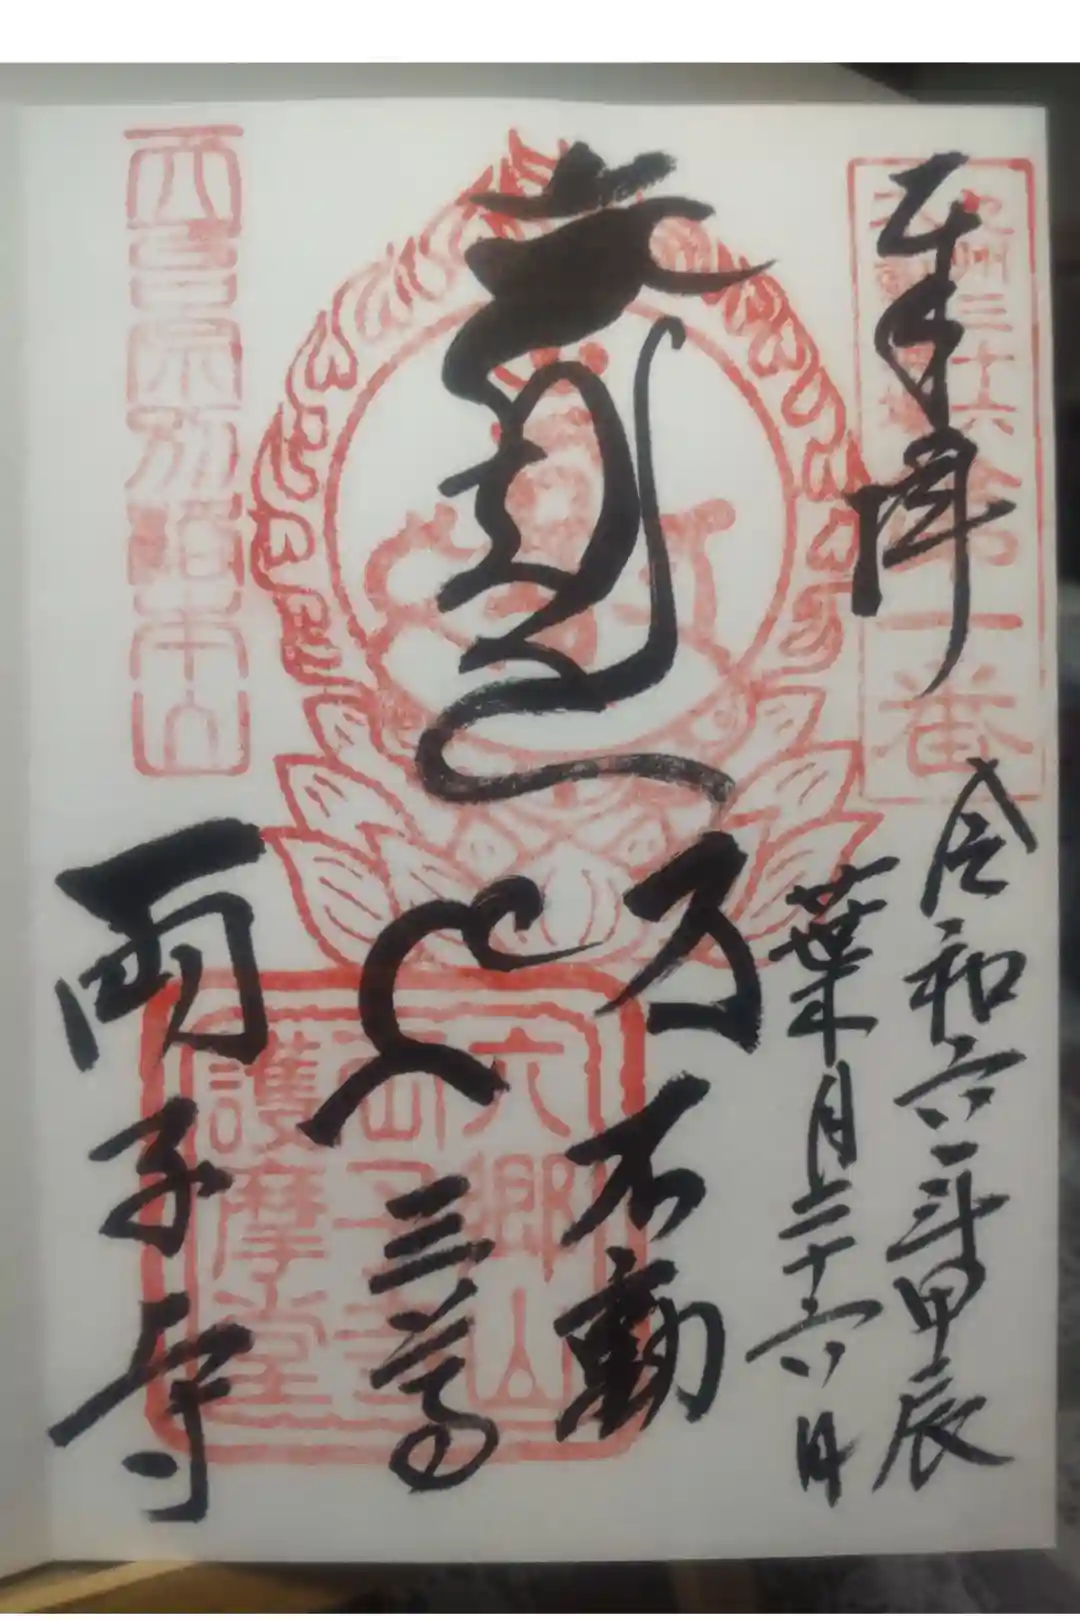 奉拝
九州三十六
不動霊場
第一番
令和六年甲辰
葉月二十六日
不動
三尊
六郷山
両子寺
護摩堂
天台宗別格本山
両子寺